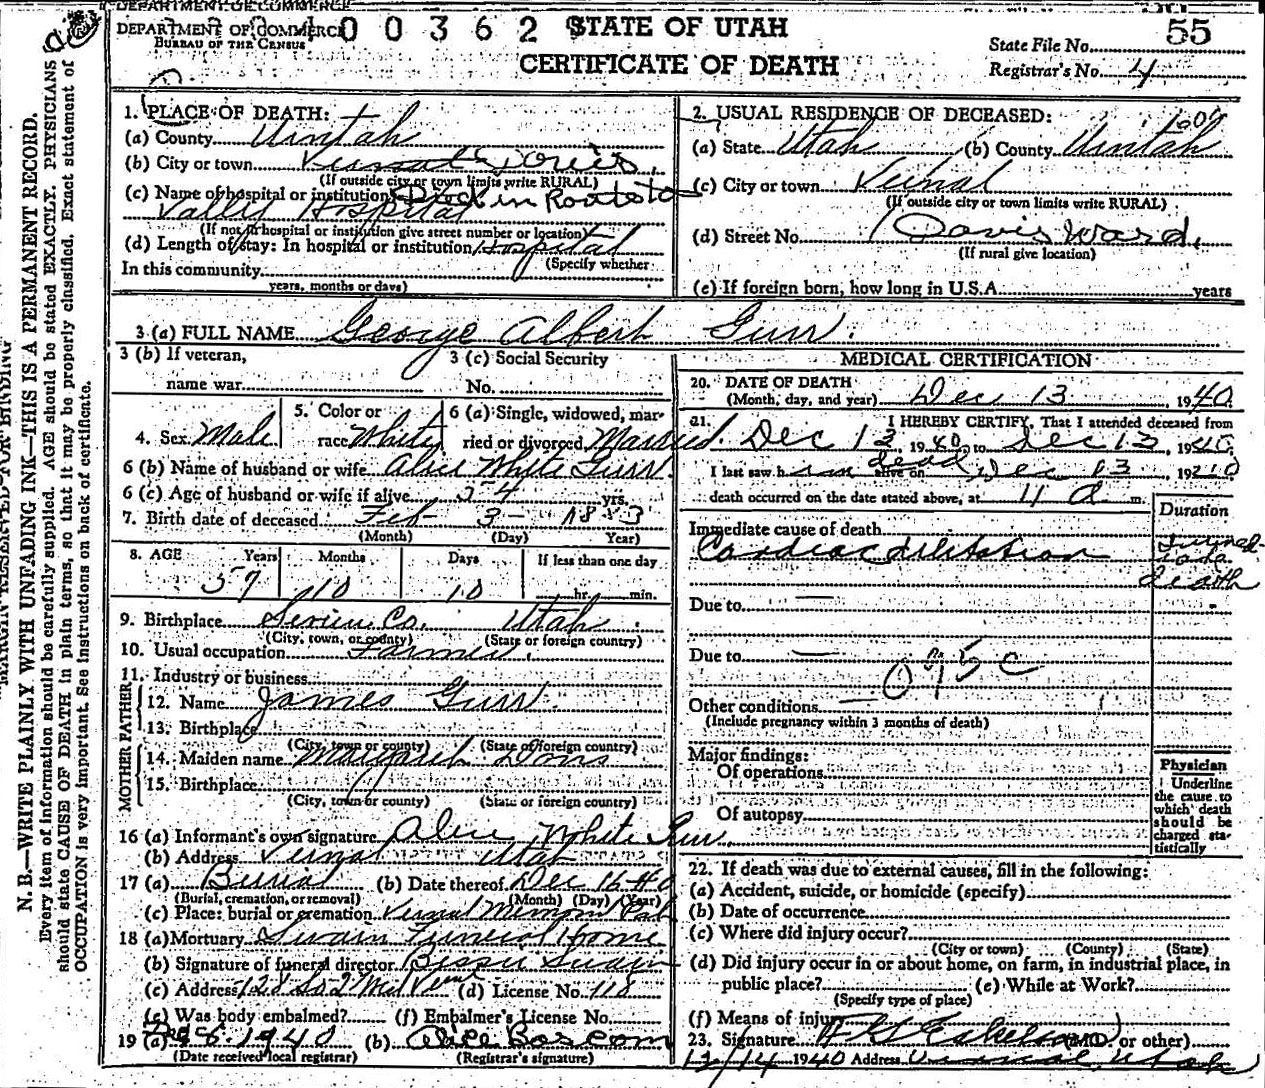 DEPARTMENT OF COMMERCE
DEPARTMENT OF COMMERCE 00362 STATE OF UTAH 55
BUREAU OF THE CENSUS
State File No.
CERTIFICATE OF DEATH
Registrar's No. 4
MARGIN RESERVED FOR BINDING
N. B.—WRITE PLAINLY WITH UNFADING INK—THIS IS A PERMANENT RECORD.
Every item of information should be carefully supplied. AGE should be stated EXACTLY. PHYSICIANS
should state CAUSE OF DEATH in plain terms, so that it may be properly classified. Exact statement of
OCCUPATION is very important. See instructions on back of certificate.
1. PLACE OF DEATH:
(a) County Uintah
(b) City or town Vernal Davis
(If outside city or town limits write RURAL)
(c) Name of hospital or institution Died in Route to
Valley Hospital
(If not in hospital or institution give street number or location)
(d) Length of stay: In hospital or institution Hospital
(Specify whether
In this community
years, months or days)
2. USUAL RESIDENCE OF DECEASED:
(a) State Utah (b) County Uintah
(c) City or town Vernal
(If outside city or town limits write RURAL)
(d) Street No. Davis Ward
(If rural give location)
(e) If foreign born, how long in U.S.A. years
3 (a) FULL NAME George Albert Gurr
3 (b) If veteran, 3 (c) Social Security
name war No.
4. Sex Male 5. Color or race White 6 (a) Single, widowed, married or divorced Married
6 (b) Name of husband or wife Alice White Gurr
6 (c) Age of husband or wife if alive 54 yrs.
7. Birth date of deceased Feb 3 - 1883
(Month) (Day) Year)
8. AGE Years Months Days If less than one day
57 10 10 hr. min.
9. Birthplace Sevier Co. Utah
(City, town, or county) (State or foreign country)
10. Usual occupation Farmer
11. Industry or business
FATHER
12. Name James Gurr
13. Birthplace
(City, town or county) (State or foreign country)
MOTHER
14. Maiden name Margaret
15. Birthplace
(City, town or county) (State or foreign country)
16 (a) Informant's own signature Alice White Gurr
(b) Address Vernal Utah
17 (a) Burial (b) Date thereof Dec 16 40
(Burial, cremation, or removal) (Month) (Day) (Year)
(c) Place: burial or cremation Vernal Memorial Park
18 (a) Mortuary Swain Funeral Home
(b) Signature of funeral director Bessie Swain
(c) Address 128 So 2 (d) License No. 118
(e) Was body embalmed? (f) Embalmer's License No.
19 (a) 1940 (b) Alice Boscom
(Date received local registrar) (Registrar's signature)
MEDICAL CERTIFICATION
20. DATE OF DEATH
(Month, day, and year) Dec 13, 1940
21. I HEREBY CERTIFY, That I attended deceased from
Dec 13 1940, to Dec 13, 1940
I last saw him alive on dead Dec 13 1940
death occurred on the date stated above, at 11 a m.
Duration
Immediate cause of death
Cardiac dilitation
death
Due to —
Due to —
095c
Other conditions
(Include pregnancy within 3 months of death)
Major findings:
Of operations
Of autopsy
Physician
Underline
the cause to
which death
should be
charged sta-
tistically
22. If death was due to external causes, fill in the following:
(a) Accident, suicide, or homicide (specify)
(b) Date of occurrence
(c) Where did injury occur?
(City or town) (County) (State)
(d) Did injury occur in or about home, on farm, in industrial place, in
public place? (e) While at Work?
(Specify type of place)
(f) Means of injury
23. Signature (MD. or other)
12/14 1940 Address Vernal, Utah